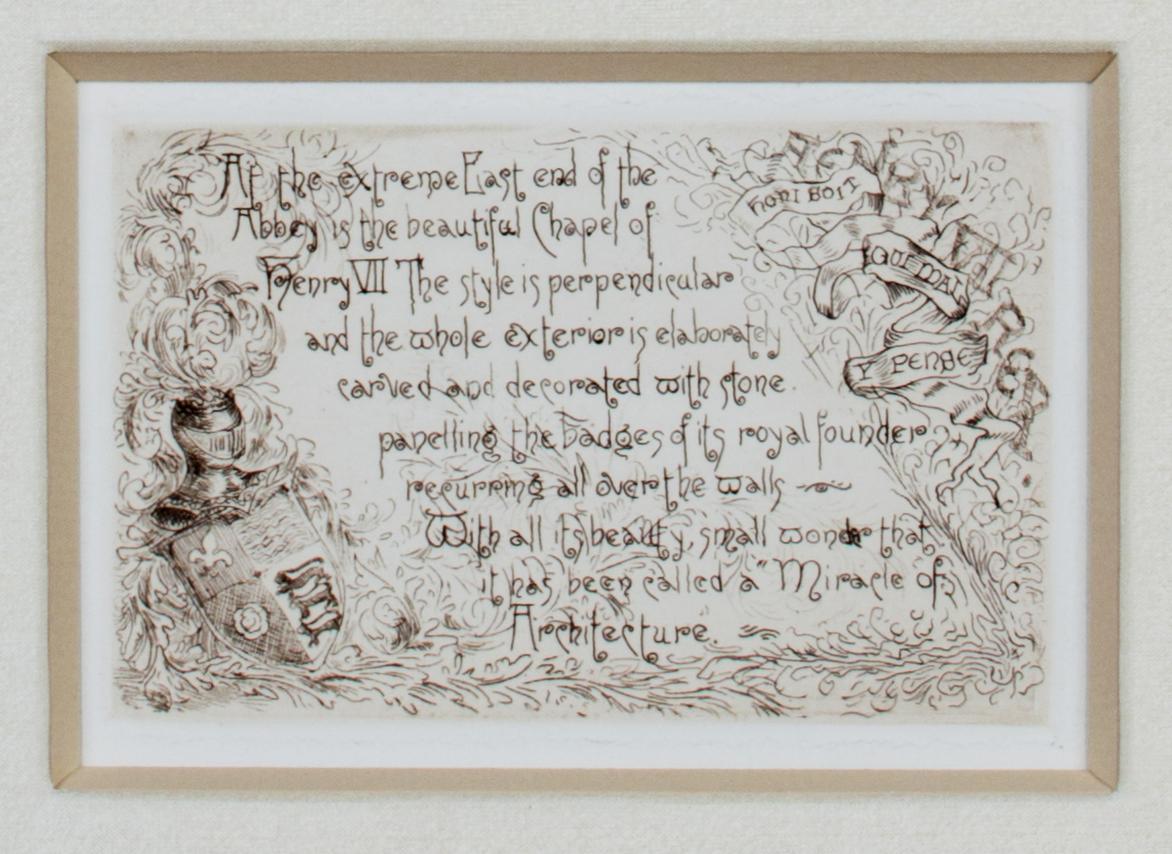 At the extreme East end of the
Abbey is the beautiful Chapel of
Henry VII The style is perpendicular
and the whole exterior is elaborately
carved and decorated with stone.
panelling the badges of its royal founder
recurring all over the walls
With all its beauty, small wonder that
it has been called a "Miracle of
Architecture.
HONI SOIT
QUI MAL
Y PENSE